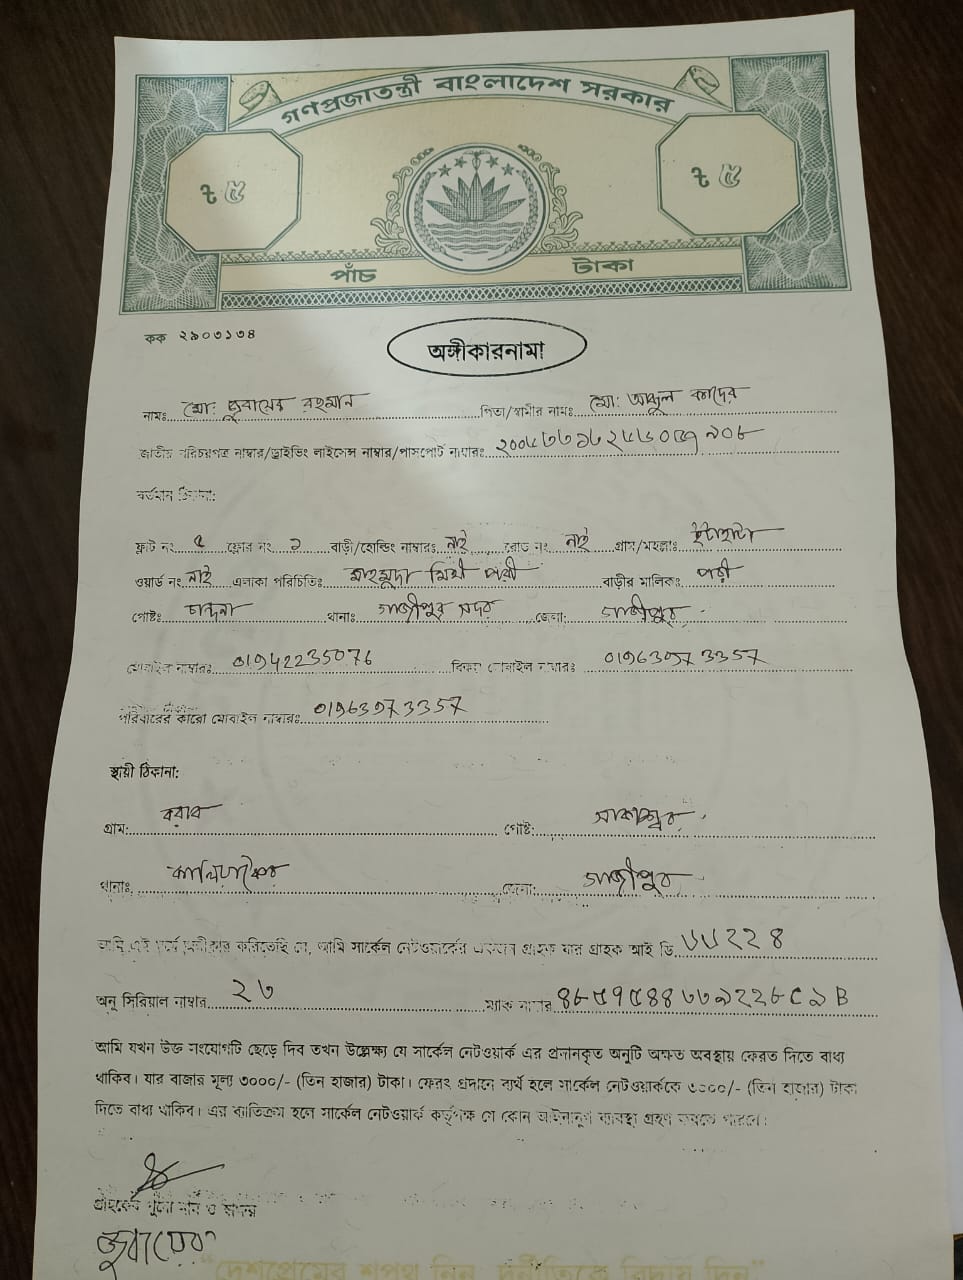 গণপ্রজাতন্ত্রী বাংলাদেশ সরকার
৳ ৫ ৳ ৫
পাঁচ টাকা
কক ২৯০৩১৩৪
অঙ্গীকারনামা
নামঃ মো: জুবায়ের রহমান পিতা/স্বামীর নামঃ মো: আব্দুল কাদের
জাতীয় পরিচয়পত্র নাম্বার/ড্রাইভিং লাইসেন্স নাম্বার/পাসপোর্ট নাম্বারঃ
বর্তমান ঠিকানা:
ফ্লাট নং ৫ ফ্লোর নং ১ বাড়ী/হোল্ডিং নাম্বারঃ নাই রোড নং নাই গ্রাম/মহল্লাঃ ইটাহাটা
ওয়ার্ড নং নাই এলাকা পরিচিতিঃ বাড়ীর মালিকঃ
পোষ্টঃ চান্দনা থানাঃ গাজীপুর সদর জেলা: গাজীপুর
মোবাইল নাম্বারঃ 01942235076 বিকল্প মোবাইল নাম্বারঃ 01963973357
পরিবারের কারো মোবাইল নাম্বারঃ 01963973357
স্থায়ী ঠিকানা:
গ্রাম: বরাব পোষ্ট: সাকাশ্বর
থানাঃ কালিয়াকৈর জেলা: গাজীপুর
আমি এই মর্মে অঙ্গীকার করিতেছি যে, আমি সার্কেল নেটওয়ার্কের একজন গ্রাহক যার গ্রাহক আই ডি
অনু সিরিয়াল নাম্বার ২৩ ম্যাক নাম্বার
আমি যখন উক্ত সংযোগটি ছেড়ে দিব তখন উল্লেক্ষ্য যে সার্কেল নেটওয়ার্ক এর প্রদানকৃত অনুটি অক্ষত অবস্থায় ফেরত দিতে বাধ্য
থাকিব। যার বাজার মূল্য ৩০০০/- (তিন হাজার) টাকা। ফেরৎ প্রদানে ব্যর্থ হলে সার্কেল নেটওয়ার্ককে ৩০০০/- (তিন হাজার) টাকা
দিতে বাধ্য থাকিব। এর ব্যতিক্রম হলে সার্কেল নেটওয়ার্ক কর্তৃপক্ষ যে কোন আইনানুগ ব্যবস্থা গ্রহণ করতে পারবে।
গ্রাহকের পুরো নাম ও স্বাক্ষর
জুবায়ের
"দেশপ্রেমের শপথ নিন, দুর্নীতিকে বিদায় দিন"